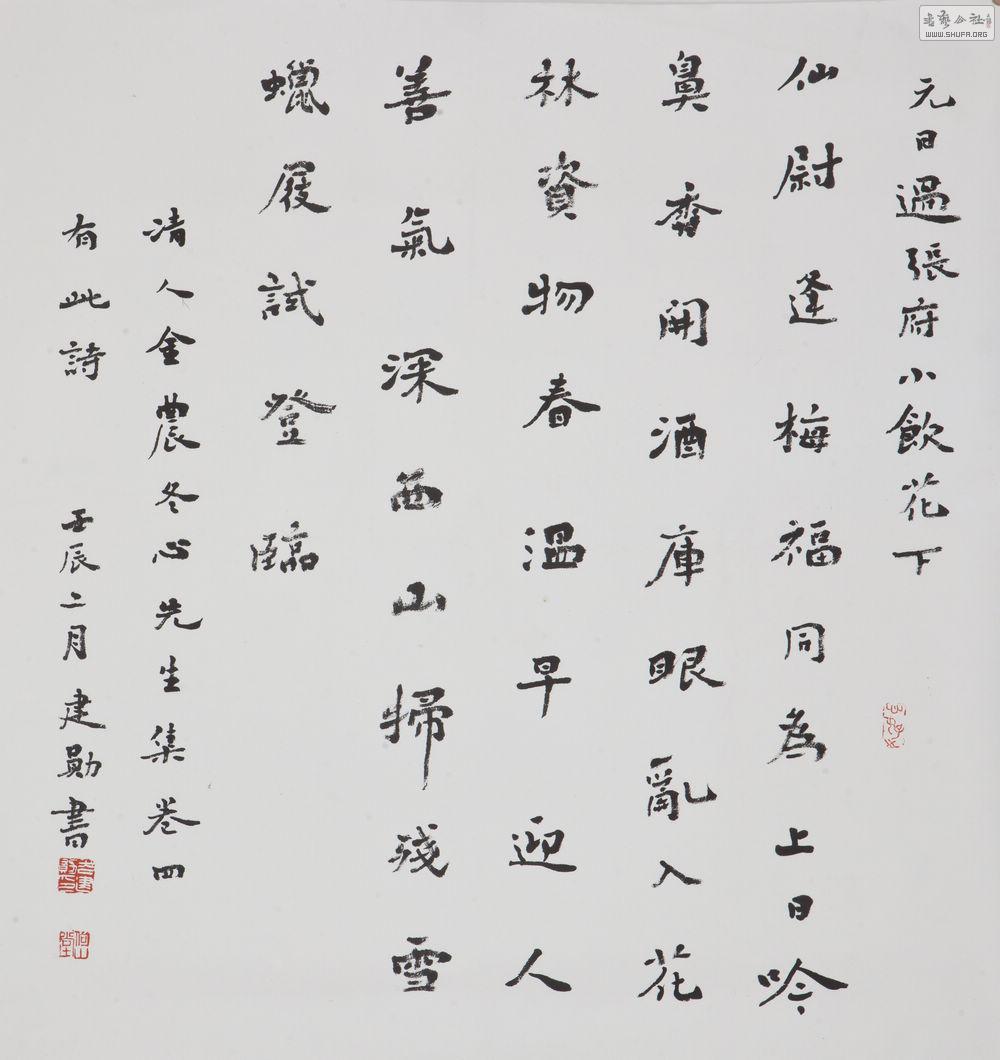 元日過張府小飲花下
仙尉逢梅福同為上日吟
鼻香開酒庫眼亂入花
林資物春溫早迎人
善氣深西山掃殘雪
蠟屐試登臨
清人金農冬心先生集卷四
有此詩 壬辰二月建勛書
書藝公社
WWW.SHUFA.ORG